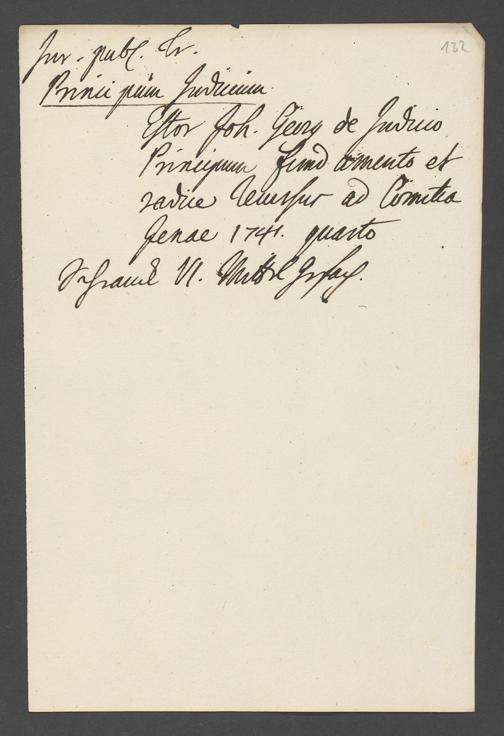 Jur. publ. Gr.
132
Principum Judicium
Estor Joh. Georg de Judicio
Principum fundamento et
radice Recursus ad Comitia
Jenae 1741. quarto
Schranck VI. Mittl